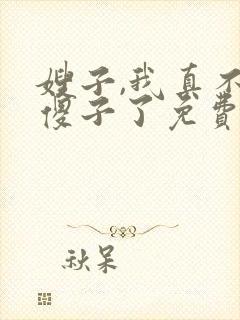 嫂子,我真不
傻子了免费
秋呆